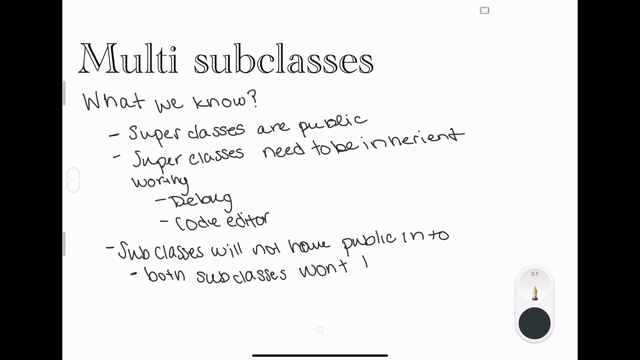 Multi subclasses
What we know?
- Super classes are public
- Super classes need to be inherient
working
- Debug
- Code editor
- Sub classes will not have public info
- both subclasses wont
3.7